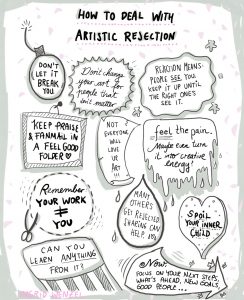 HOW TO DEAL WITH
ARTISTIC REJECTION
DON'T
LET IT
BREAK
YOU
Don't change
your art for
people that
isn't matter
REACTION MEANS:
PEOPLE SEE YOU.
KEEP IT UP UNTIL
THE RIGHT ONE'S
SEE IT.
KEEP PRAISE
& FANMAIL IN
A FEEL GOOD
FOLDER
NOT
EVERYONE
WILL
LOVE
UR
ART
!!!
Feel the pain.
Maybe even turn
it into creative
Energy!
Remember
YOUR WORK
≠
YOU
MANY
OTHERS
GET REJECTED
SHARING CAN
HELP.
SPOIL
YOUR INNER
CHILD
CAN YOU
LEARN ANYTHING
FROM IT?
Now:
FOCUS ON YOUR NEXT STEPS,
WHAT'S AHEAD, NEW GOALS,
GOOD PEOPLE...